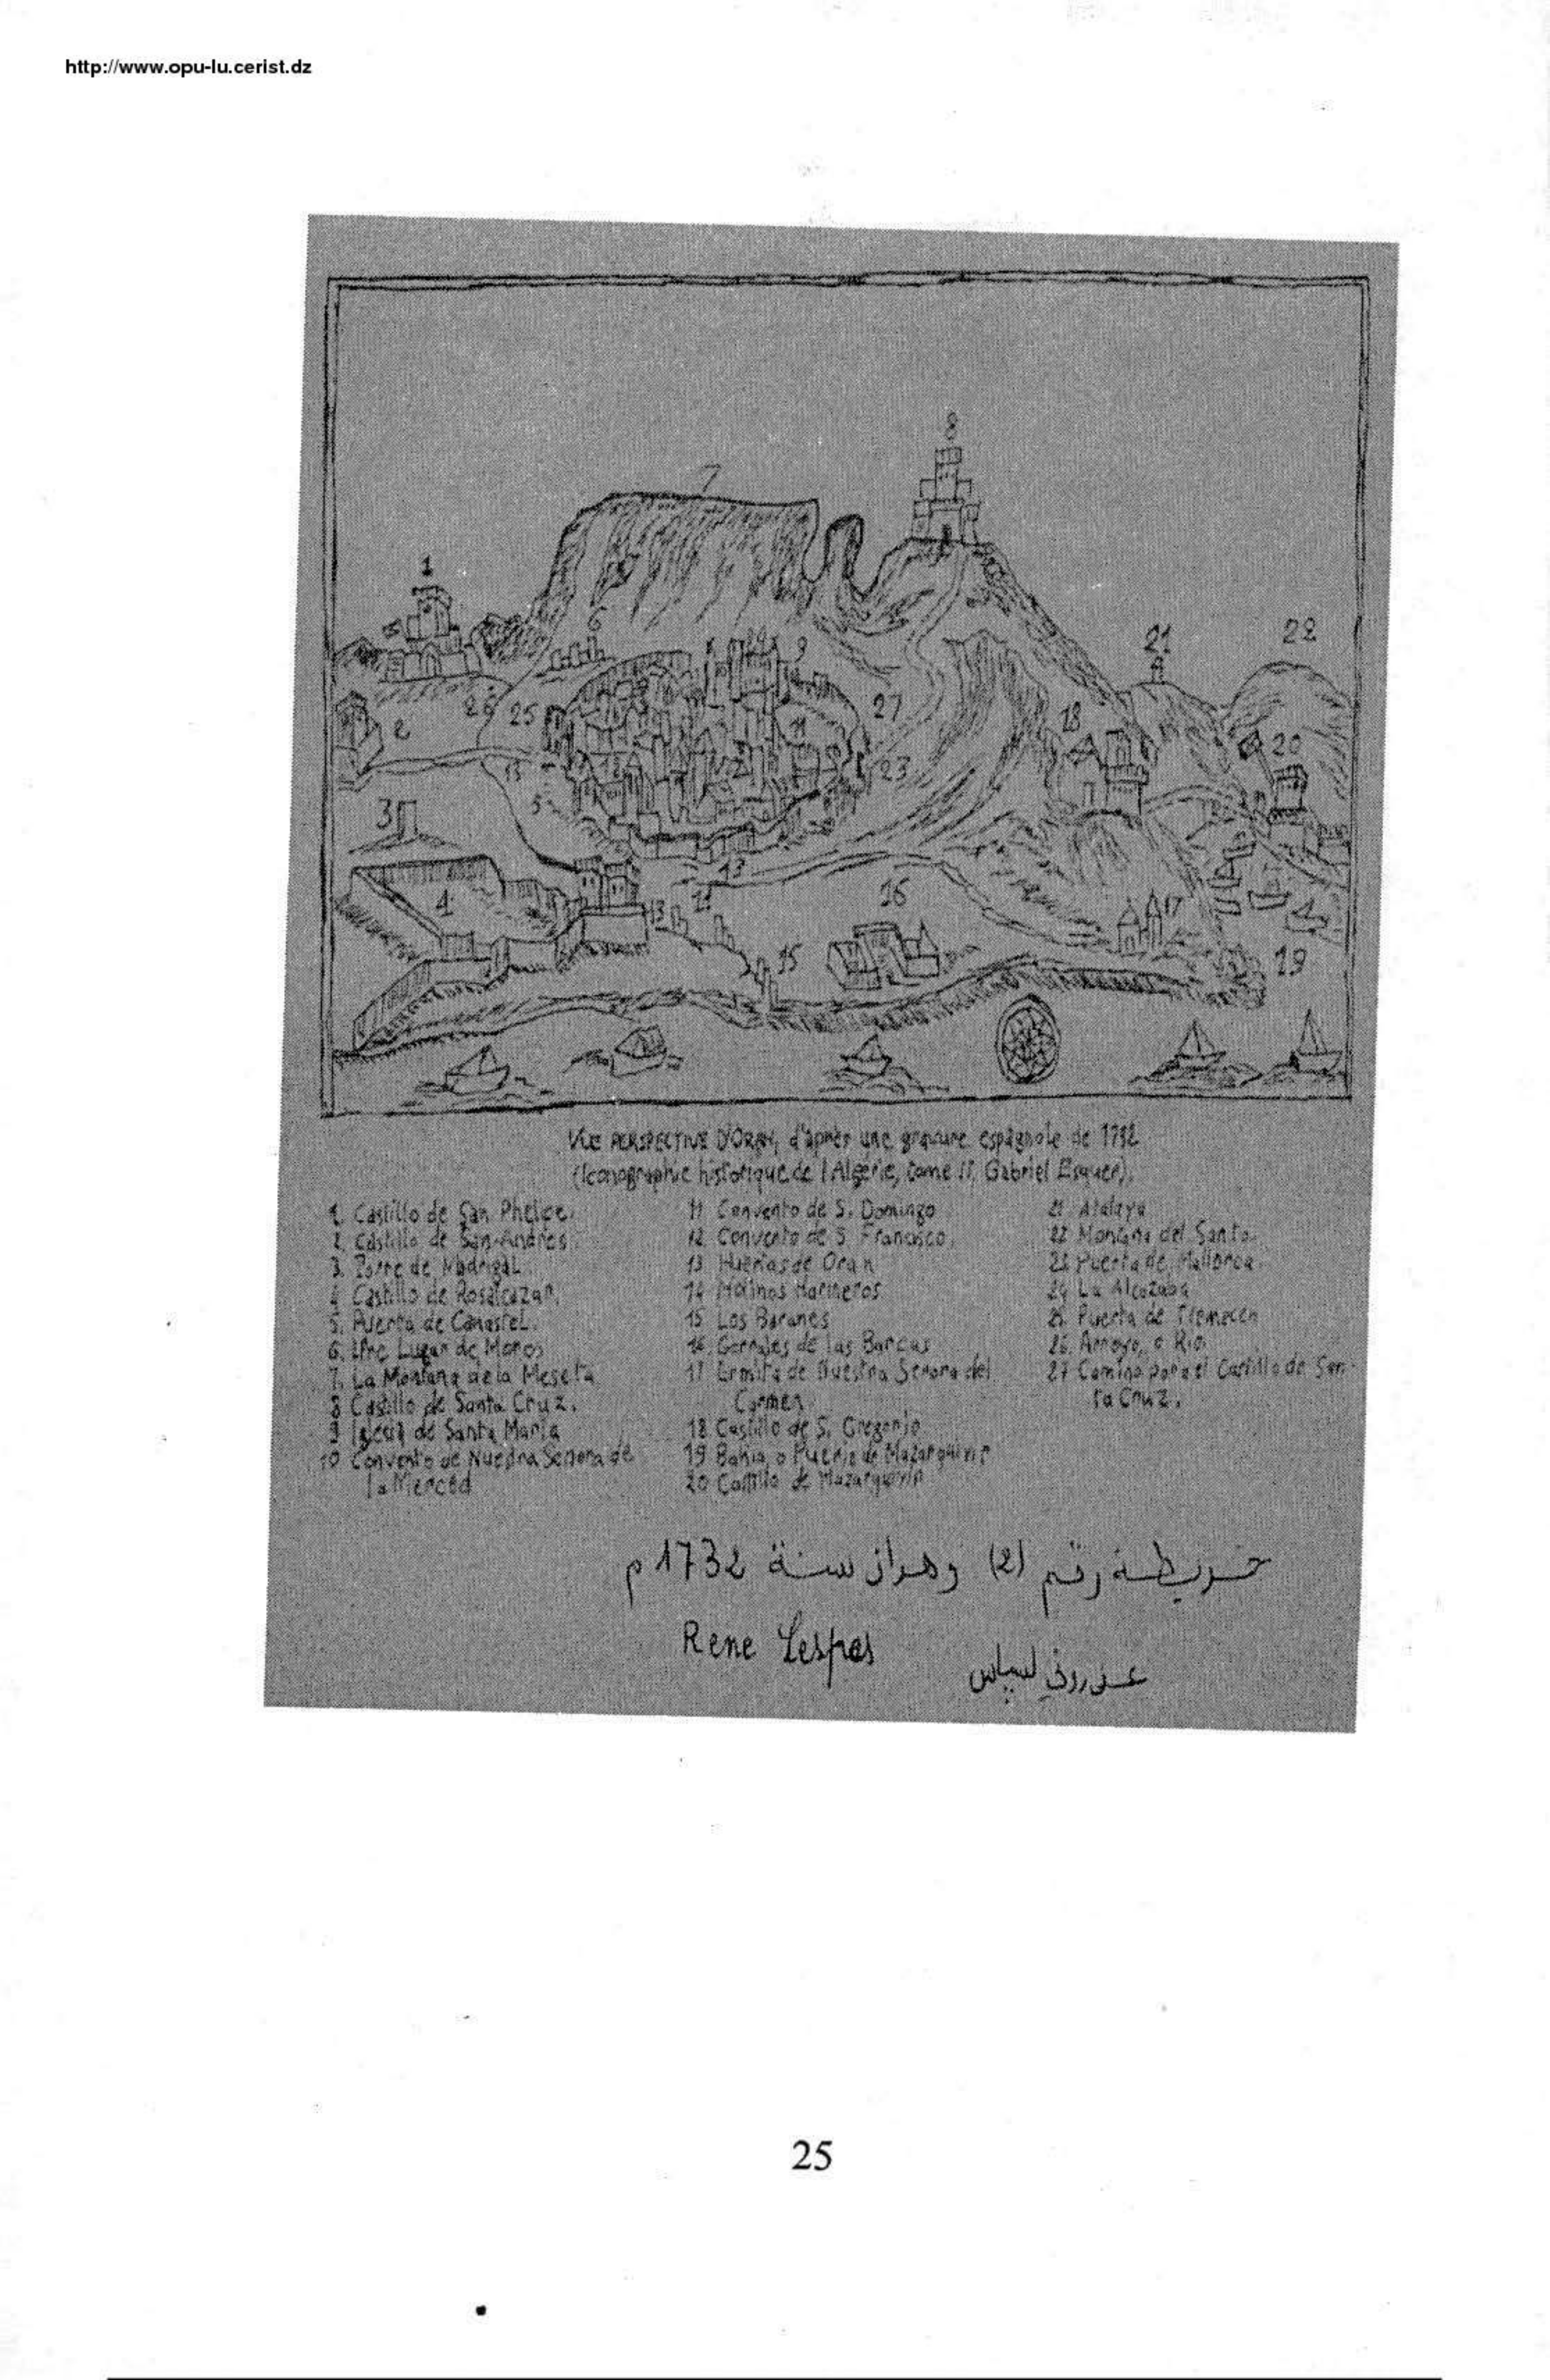 http://www.opu-lu.cerist.dz
VUE PERSPECTIVE D'ORAN, d'après une gravure espagnole de 1732
(Iconographie historique de l'Algérie, tome II, Gabriel Esquer).
1. Castillo de San Phelipe.
2. Castillo de San Andres
3. Torre de Madrigal
4 Castillo de Rosalcazar.
5. Puerta de Canastel.
6. Lugar de Moros
7. La Montana de la Meseta
8 Castillo de Santa Cruz.
9 Iglesia de Santa Maria
10 Convento de Nuestra Senora de
la Merced
11 Convento de S. Domingo
12 Convento de S Francisco
13 Huertas de Oran
14 Molinos Harineros
15 Los Baranes
16. de las Barcas
17 Ermita de Nuestra Senora del
Carmen
18 Castillo de S. Gregorio
19 Bahia, o Puerto de Mazarquivir
20 Castillo de Mazarquivir
21 Atalaya
22 Montana del Santo.
23 Puerta de Mallorca
24 La Alcazaba
25 Puerta de Tlemecen
26. Arroyo, o Rio
27 Camino para el Castillo de San-
ta Cruz.
خريطة رقم (2) وهران سنة 1732 م
Rene Lespes
عن روني لسباس
25